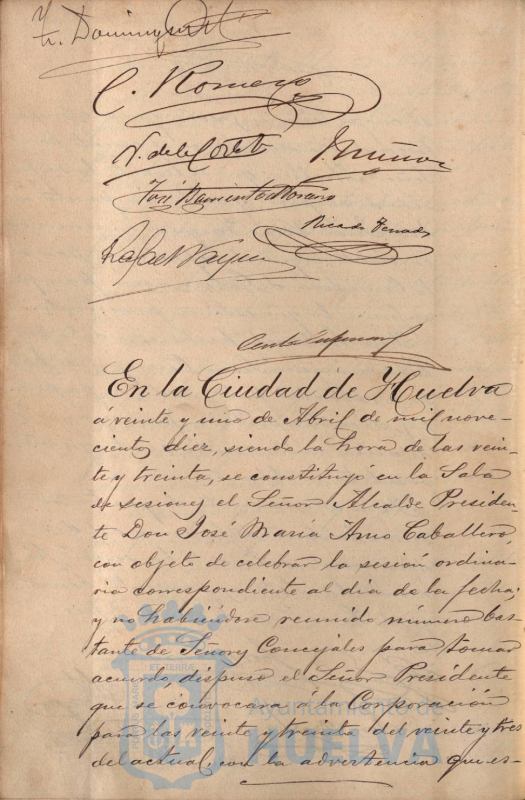 C. Romero
N. de la Corte J. Muñoz
José Barrientos Moreno
Ricardo Terrades
Rafael Vazquez
En la Ciudad de Huelva
á veinte y uno de Abril de mil nove-
cientos diez, siendo la hora de las vein-
te y treinta, se constituyó en la Sala
de sesiones el Señor Alcalde Presiden-
te Don José María Amo Caballero,
con objeto de celebrar la sesión ordina-
ria correspondiente al dia de la fecha;
y no habiéndose reunido número bas-
tante de Señores Concejales para tomar
acuerdo dispuso el Señor Presidente
que se convocara á la Corporación
para las veinte y treinta del veinte y tres
del actual, con la advertencia que es-
Ayuntamiento de
HUELVA